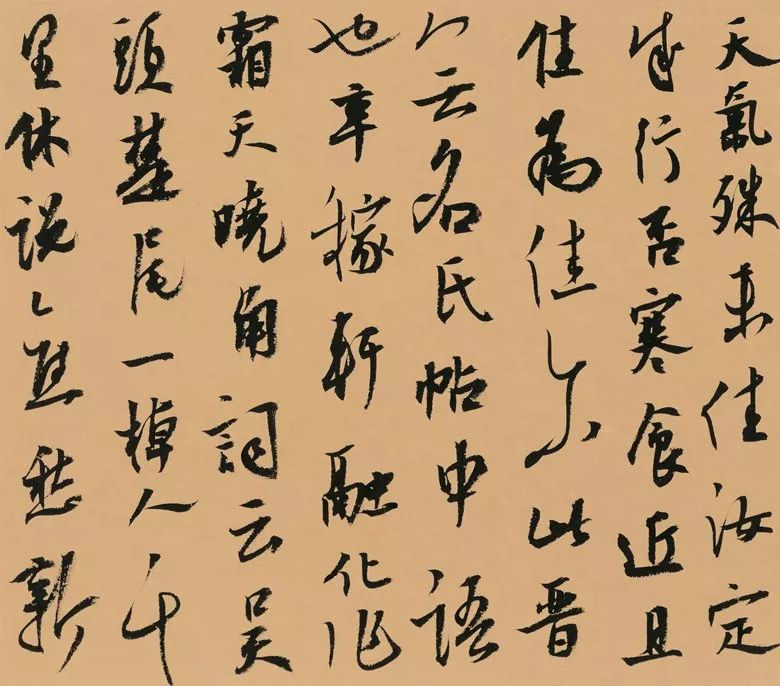 天氣殊未佳汝定
成行否寒食近且
住為佳尔此晉
人无名氏帖中語
也辛稼軒融化作
霜天曉角詞云吴
頭楚尾一棹人千
里休說舊愁新